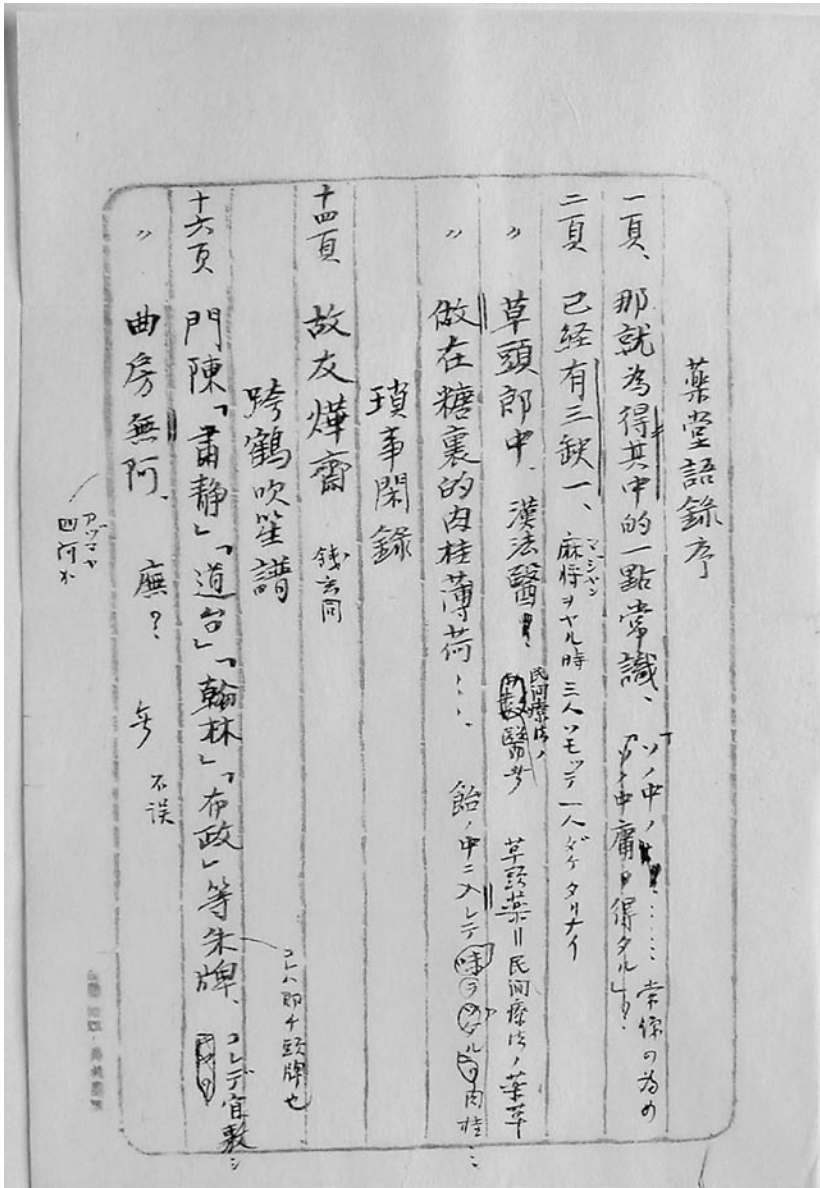 薬堂語錄序
一頁、那就為得其中的一點常識、「ソノ中ノ……常
「ソノ中庸ヲ得タル」カ?
二頁 已経有三缺一、麻将ヲヤル時三人ソモッテ一人ダケタリナイ
マージャン
〃 草頭郎中、漢法醫、民间療法ノ 草頭薬=民间療法ノ薬草
〃 做在糖裏的肉桂薄荷……飴ノ中ニ入レテ味ヲ 肉桂……
瑣事閑錄
十四頁 故友燁齋 銭玄同
跨鶴吹笙譜
十六页 門陳「肅静」「道台」「翰林」「布政」等朱牌、コレデ宜敷シ
コレハ即チ頭牌也
〃 曲房無阿、廡? 不誤
アヅマヤ
四阿カ